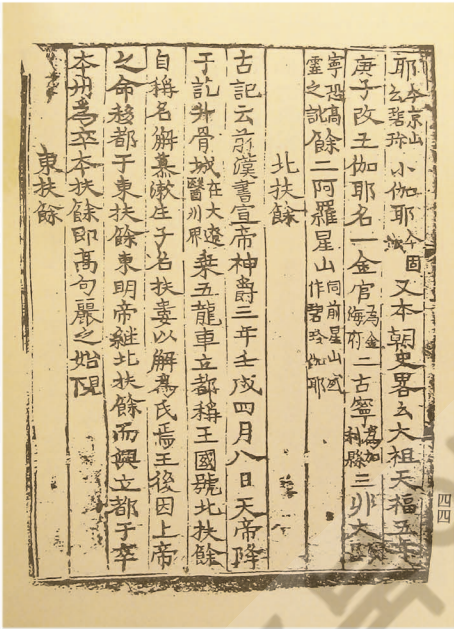 耶今京山云碧珎小伽耶今固城又本朝史畧云大祖天福五年
庚子改五伽耶名一金官爲金海府二古寧爲加利縣三非火
寧恐高靈之訛餘二阿羅星山同前星山或作碧珍伽耶
北扶餘
古記云前漢書宣帝神爵三年壬戌四月八日天帝降
于訖升骨城在大遼醫州界乘五龍車立都稱王國號北扶餘
自稱名解慕漱生子名扶婁以解為氏焉王後因上帝
之命移都于東扶餘東明帝継北扶餘而興立都于卒
本州為卒本扶餘即高句麗之始
東扶餘
四四